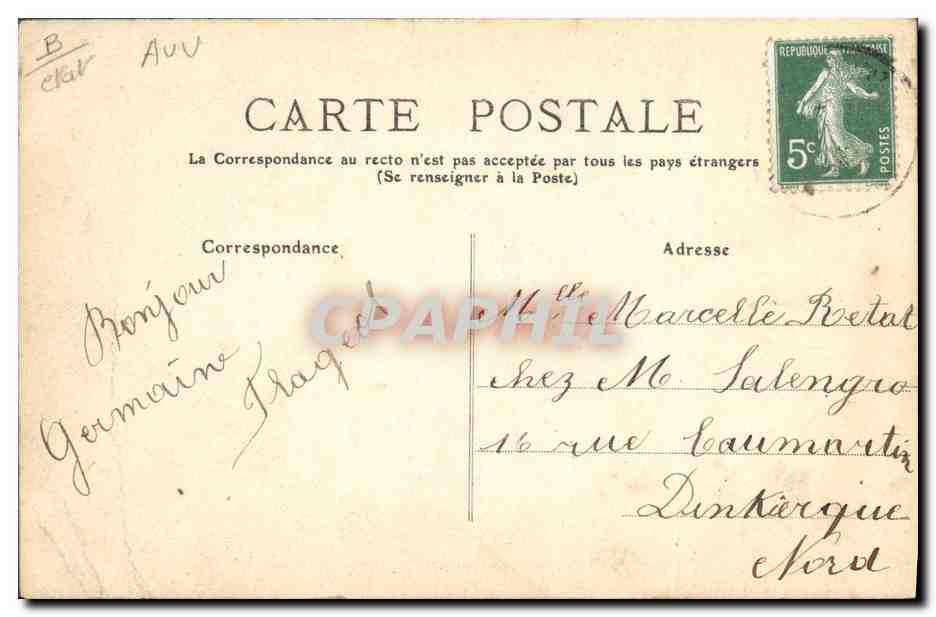 B
AUV
CARTE POSTALE
REPUBLIQUE FRANÇAISE
5c
POSTES
La Correspondance au recto n'est pas acceptée par tous les pays étrangers
(Se renseigner à la Poste)
Correspondance
Bonjour
Germaine
Adresse
Mlle Marcelle Retat
chez M. Salengro
16 rue Caumartin
Dunkerque
Nord
CPAPHIL